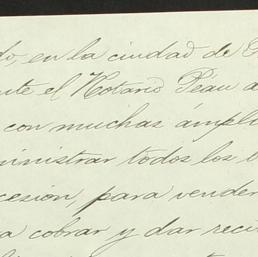 do, en la ciudad de
nte el Notario Péan a
con muchas ámpli
ministrar todos los b
cesión, para vender
a cobrar y dar reci